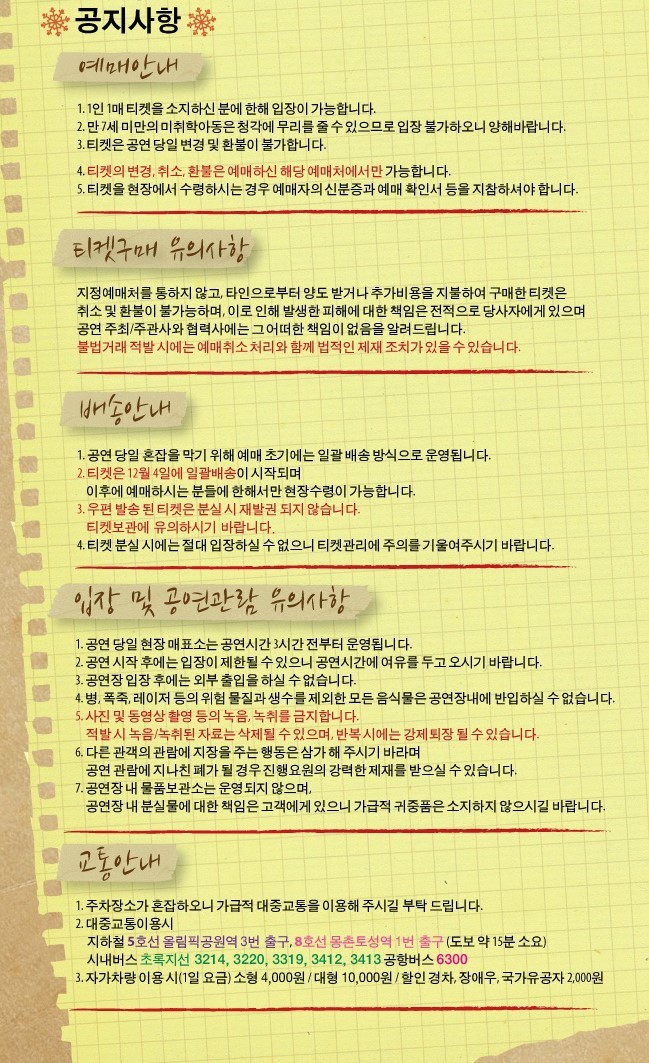 공지사항
예매안내
1. 1인 1매 티켓을 소지하신 분에 한해 입장이 가능합니다.
2. 만 7세 미만의 미취학아동은 청각에 무리를 줄 수 있으므로 입장 불가하오니 양해바랍니다.
3. 티켓은 공연 당일 변경 및 환불이 불가합니다.
4. 티켓의 변경, 취소, 환불은 예매하신 해당 예매처에서만 가능합니다.
5. 티켓을 현장에서 수령하시는 경우 예매자의 신분증과 예매 확인서 등을 지참하셔야 합니다.
티켓구매 유의사항
지정예매처를 통하지 않고, 타인으로부터 양도 받거나 추가비용을 지불하여 구매한 티켓은
취소 및 환불이 불가능하며, 이로 인해 발생한 피해에 대한 책임은 전적으로 당사자에게 있으며
공연 주최/주관사와 협력사에는 그 어떠한 책임이 없음을 알려드립니다.
불법거래 적발 시에는 예매취소 처리와 함께 법적인 제재 조치가 있을 수 있습니다.
배송안내
1. 공연 당일 혼잡을 막기 위해 예매 초기에는 일괄 배송 방식으로 운영됩니다.
2. 티켓은 12월 4일에 일괄배송이 시작되며
이후에 예매하시는 분들에 한해서만 현장수령이 가능합니다.
3. 우편 발송 된 티켓은 분실 시 재발권 되지 않습니다.
티켓보관에 유의하시기 바랍니다.
4. 티켓 분실 시에는 절대 입장하실 수 없으니 티켓관리에 주의를 기울여주시기 바랍니다.
입장 및 공연관람 유의사항
1. 공연 당일 현장 매표소는 공연시간 3시간 전부터 운영됩니다.
2. 공연 시작 후에는 입장이 제한될 수 있으니 공연시간에 여유를 두고 오시기 바랍니다.
3. 공연장 입장 후에는 외부 출입을 하실 수 없습니다.
4. 병, 폭죽, 레이저 등의 위험 물질과 생수를 제외한 모든 음식물은 공연장내에 반입하실 수 없습니다.
5. 사진 및 동영상 촬영 등의 녹음, 녹취를 금지합니다.
적발 시 녹음/녹취된 자료는 삭제될 수 있으며, 반복 시에는 강제퇴장 될 수 있습니다.
6. 다른 관객의 관람에 지장을 주는 행동은 삼가 해 주시기 바라며
공연 관람에 지나친 폐가 될 경우 진행요원의 강력한 제재를 받으실 수 있습니다.
7. 공연장 내 물품보관소는 운영되지 않으며,
공연장 내 분실물에 대한 책임은 고객에게 있으니 가급적 귀중품은 소지하지 않으시길 바랍니다.
교통안내
1. 주차장소가 혼잡하오니 가급적 대중교통을 이용해 주시길 부탁 드립니다.
2. 대중교통이용시
지하철 5호선 올림픽공원역 3번 출구, 8호선 몽촌토성역 1번 출구 (도보 약 15분 소요)
시내버스 초록지선 3214, 3220, 3319, 3412, 3413 공항버스 6300
3. 자가차량 이용 시(1일 요금) 소형 4,000원 / 대형 10,000원 / 할인 경차, 장애우, 국가유공자 2,000원